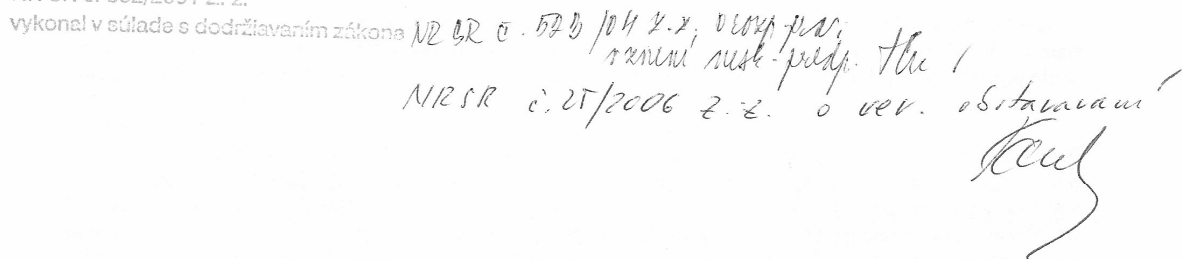 vykonal v súlade s dodržiavaním zákona NR SR č. 523/04 Z.z. o rozp. prav.
v znení nesk. predp.
NR SR č. 25/2006 Z.z. o ver. obstaravaní